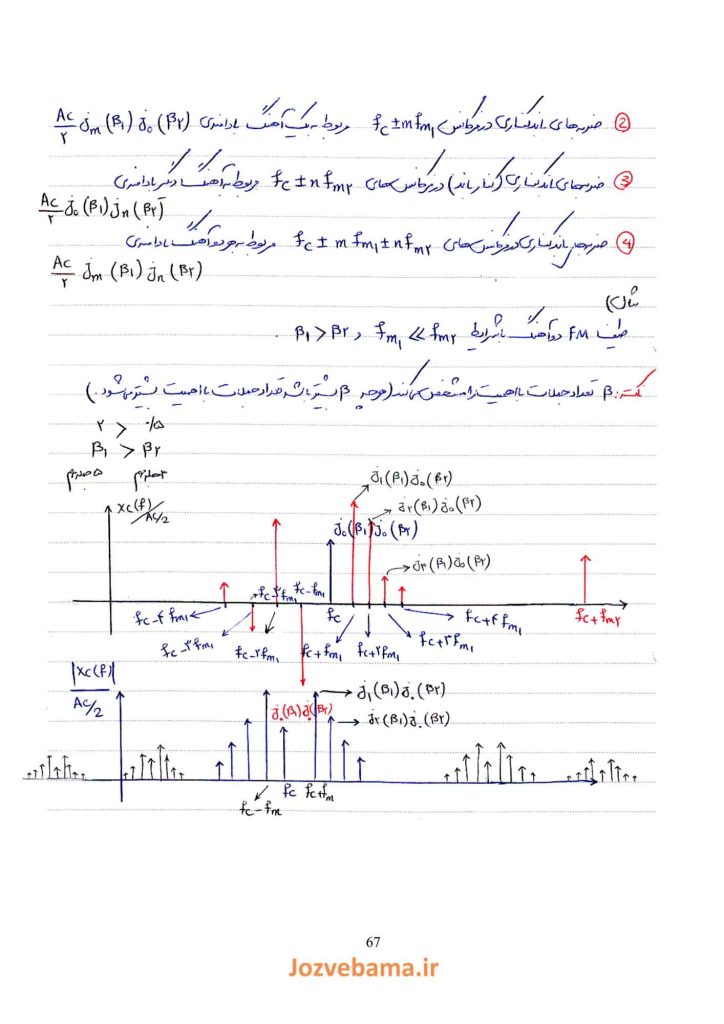 ② ضربه‌های باند کناری در فرکانس fc ± m fm₁ مربوط به یک آهنگ با دامنه‌ی Ac/۲ Jm(β₁) J₀(β۲)
③ ضربه‌های باند کناری (کنار باند) در فرکانس های fc ± n fm۲ مربوط به آهنگ دیگر با دامنه‌ی
Ac/۲ J₀(β₁) Jn(β۲)
④ ضربه‌های باند کناری در فرکانس های fc ± m fm₁ ± n fm۲ مربوط به هر دو آهنگ با دامنه‌ی
Ac/۲ Jm(β₁) Jn(β۲)
مثال)
طیف FM دو آهنگ با شرایط fm₁ ≪ fm۲ و β₁ > β۲ .
نکته: β تعداد جملات با اهمیت را مشخص می کند (هرچه β بیشتر باشد تعداد جملات با اهمیت بیشتر می شود.)
۲ > ۰/۵
β₁ > β۲
xc(f)/Ac/2
J₁(β₁)J₀(β۲)
J۲(β₁)J₀(β۲)
J₀(β₁)J₀(β۲)
J۳(β₁)J₀(β۲)
fc-۴fm₁
fc-۳fm₁
fc-۲fm₁
fc-fm₁
fc
fc+fm₁
fc+۲fm₁
fc+۳fm₁
fc+۴fm₁
fc+fm۲
|xc(f)|
Ac/2
J₁(β₁)J₀(β۲)
J₀(β₁)J₀(β۲)
J۲(β₁)J₀(β۲)
fc-fm
fc
fc+fm
67
Jozvebama.ir